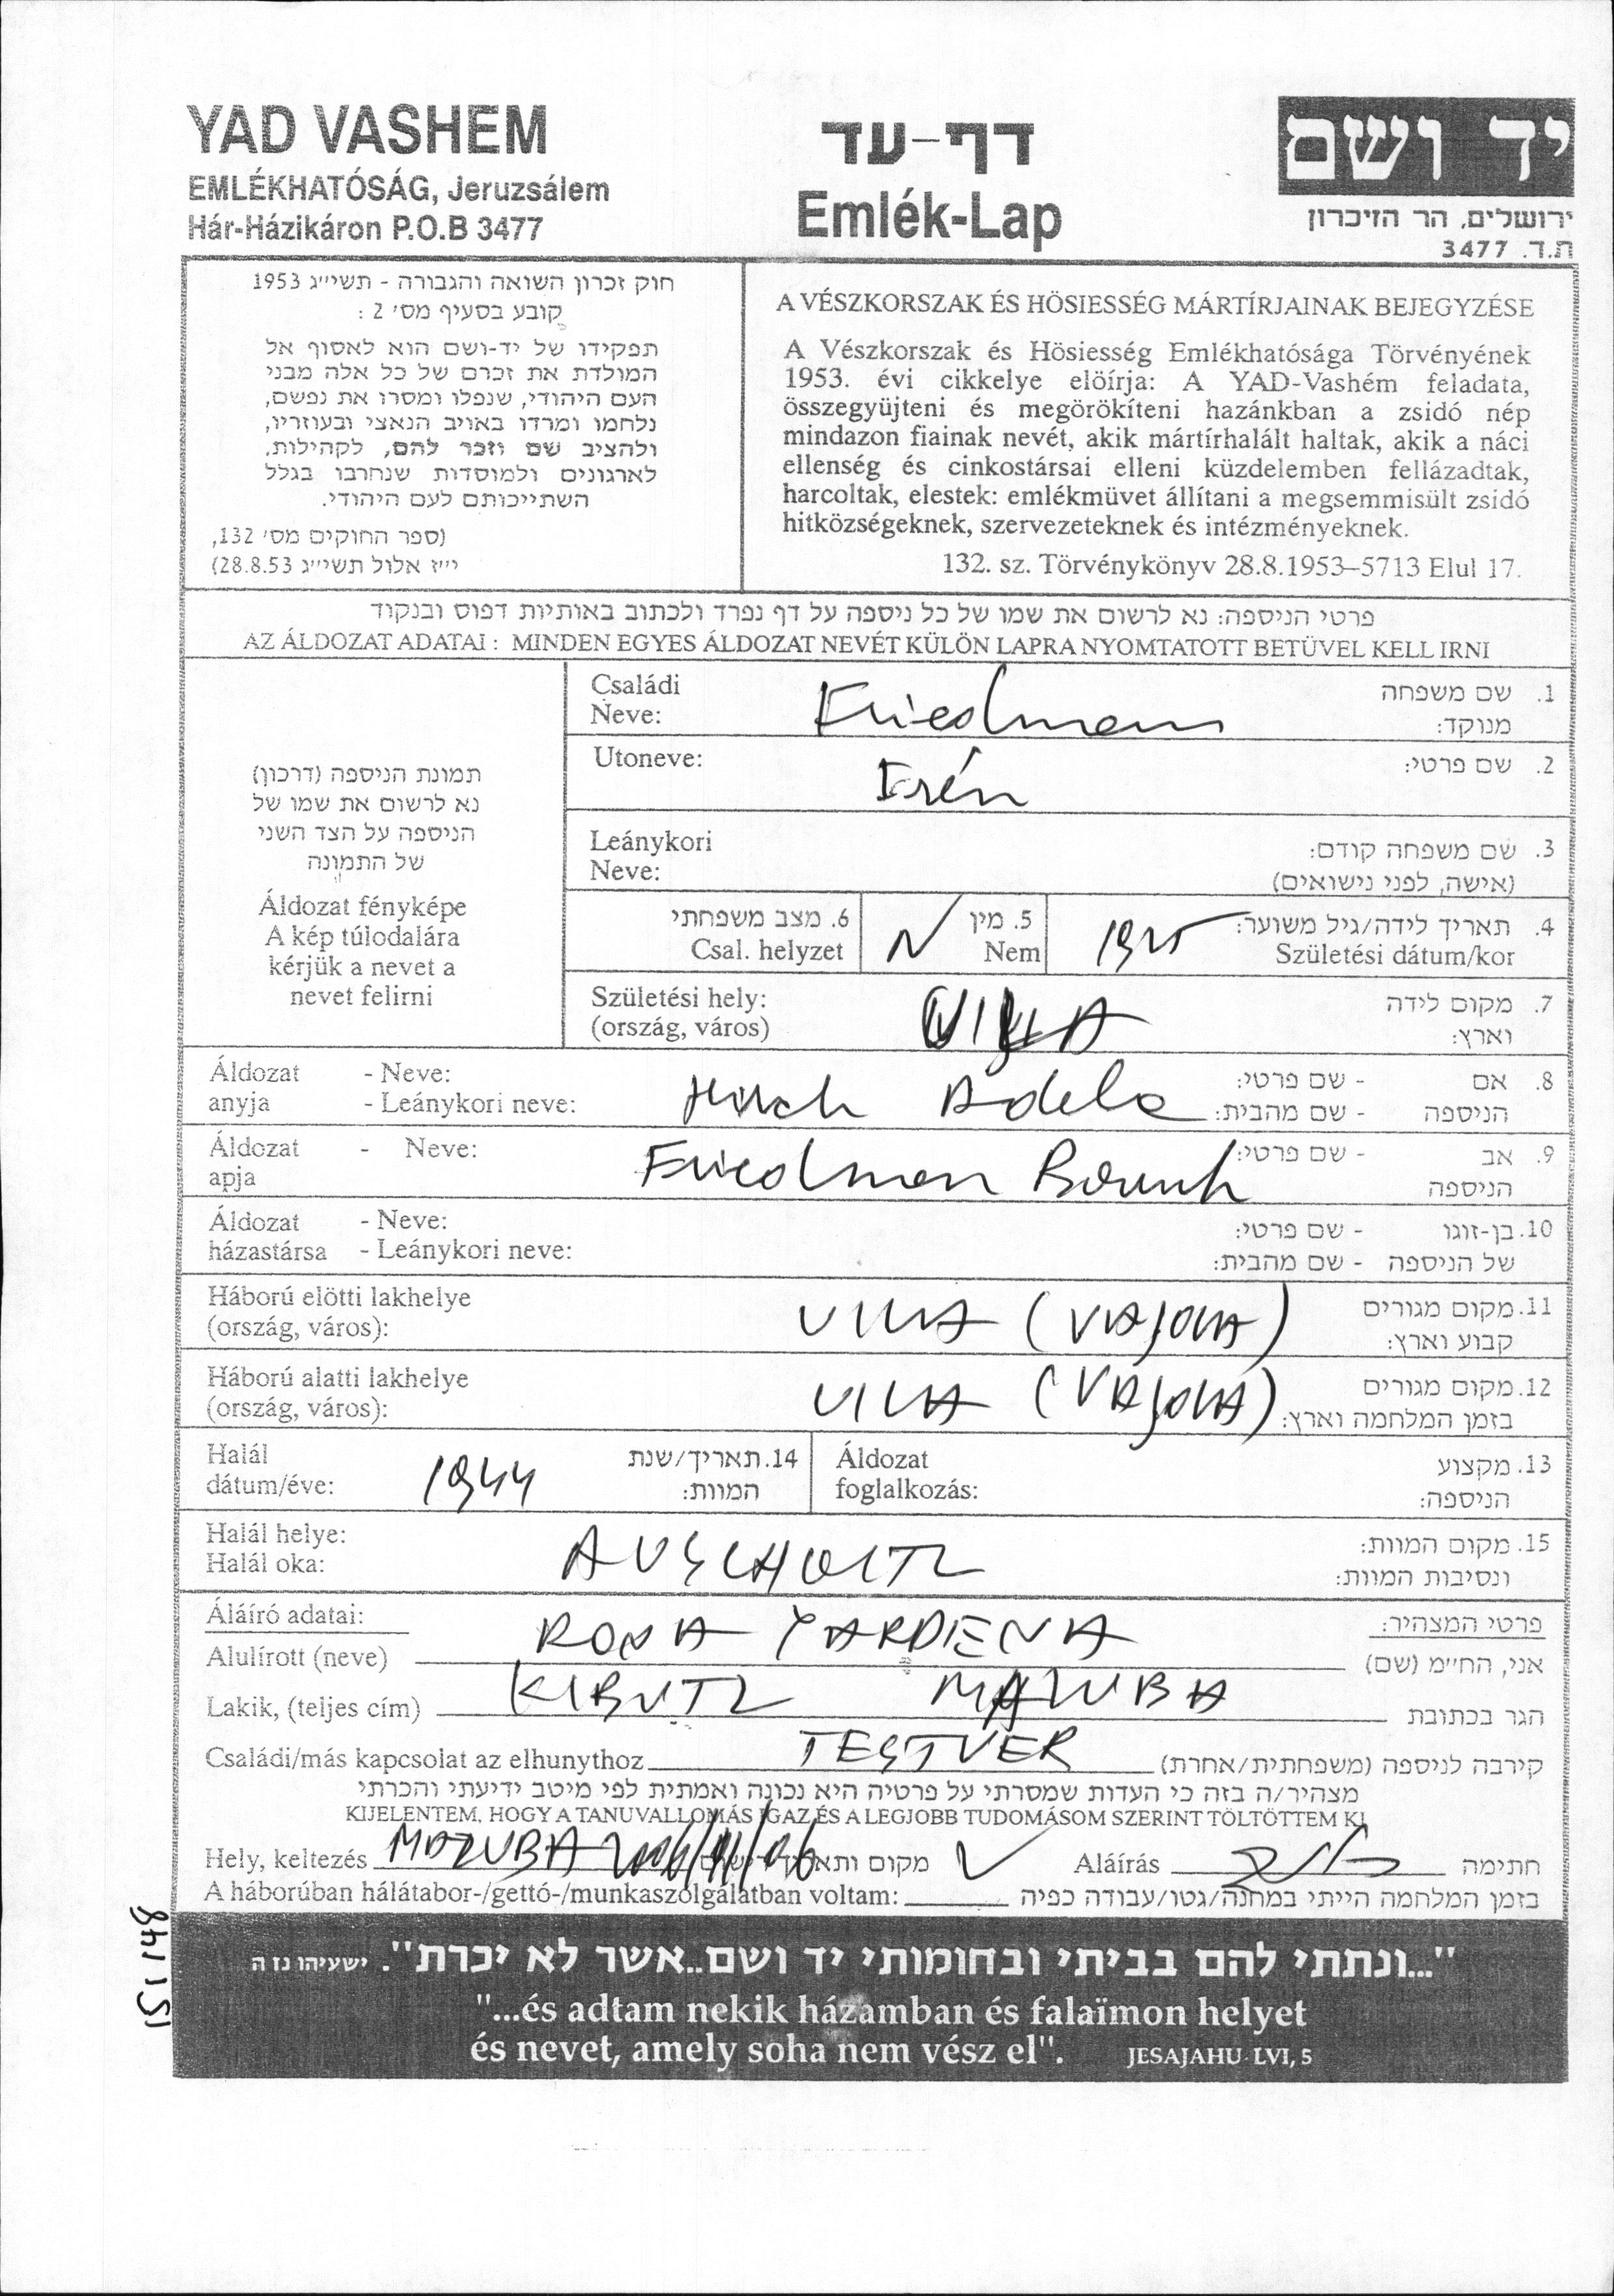 YAD VASHEM
EMLÉKHATÓSÁG, Jeruzsálem
Hár-Házikáron P.O.B 3477
דף-עד
Emlék-Lap
יד ושם
ירושלים, הר הזיכרון
ת.ד. 3477
חוק זכרון השואה והגבורה - תשי״ג 1953
קובע בסעיף מס׳ 2 :
תפקידו של יד-ושם הוא לאסוף אל
המולדת את זכרם של כל אלה מבני
העם היהודי, שנפלו ומסרו את נפשם,
נלחמו ומרדו באויב הנאצי ובעוזריו,
ולהציב שם וזכר להם, לקהילות,
לארגונים ולמוסדות שנחרבו בגלל
השתייכותם לעם היהודי.
(ספר החוקים מס׳ 132,
י״ז אלול תשי״ג 28.8.53)
A VÉSZKORSZAK ÉS HÖSIESSÉG MÁRTÍRJAINAK BEJEGYZÉSE
A Vészkorszak és Hösiesség Emlékhatósága Törvényének
1953. évi cikkelye elöírja: A YAD-Vashém feladata,
összegyüjteni és megörökíteni hazánkban a zsidó nép
mindazon fiainak nevét, akik mártírhalált haltak, akik a náci
ellenség és cinkostársai elleni küzdelemben fellázadtak,
harcoltak, elestek: emlékmüvet állítani a megsemmisült zsidó
hitközségeknek, szervezeteknek és intézményeknek.
132. sz. Törvénykönyv 28.8.1953–5713 Elul 17.
פרטי הניספה: נא לרשום את שמו של כל ניספה על דף נפרד ולכתוב באותיות דפוס ובנקוד
AZ ÁLDOZAT ADATAI : MINDEN EGYES ÁLDOZAT NEVÉT KÜLÖN LAPRA NYOMTATOTT BETÜVEL KELL IRNI
תמונת הניספה (דרכון)
נא לרשום את שמו של
הניספה על הצד השני
של התמונה
Áldozat fényképe
A kép túlodalára
kérjük a nevet a
nevet felirni
Családi Neve: Friedmann 1. שם משפחה מנוקד:
Utoneve: Irén 2. שם פרטי:
Leánykori Neve: 3. שם משפחה קודם: (אישה, לפני נישואים)
6. מצב משפחתי Csal. helyzet 5. מין Nem N 1925 4. תאריך לידה/גיל משוער: Születési dátum/kor
Születési hely: (ország, város) 7. מקום לידה וארץ:
Áldozat anyja - Neve: - Leánykori neve: Hirch Adela 8. אם הניספה - שם פרטי: - שם מהבית:
Áldozat apja - Neve: Friedman 9. אב הניספה - שם פרטי:
Áldozat házastársa - Neve: - Leánykori neve: 10. בן-זוגו של הניספה - שם פרטי: - שם מהבית:
Háború elötti lakhelye (ország, város): 11. מקום מגורים קבוע וארץ:
Háború alatti lakhelye (ország, város): 12. מקום מגורים בזמן המלחמה וארץ:
Halál dátum/éve: 1944 14. תאריך/שנת המוות: Áldozat foglalkozás: 13. מקצוע הניספה:
Halál helye: Halál oka: AUSCHVITZ 15. מקום המוות: ונסיבות המוות:
Áláíró adatai: פרטי המצהיר:
Alulírott (neve) RONA YARDENA אני, הח״מ (שם)
Lakik, (teljes cím) KIBUTZ MAZUBA הגר בכתובת
Családi/más kapcsolat az elhunythoz TESTVER קירבה לניספה (משפחתית/אחרת)
מצהיר/ה בזה כי העדות שמסרתי על פרטיה היא נכונה ואמתית לפי מיטב ידיעתי והכרתי
KIJELENTEM, HOGY A TANUVALLOMÁS IGAZ ÉS A LEGJOBB TUDOMÁSOM SZERINT TÖLTÖTTEM KI
Hely, keltezés MAZUBA מקום ותאריך רישום Aláírás חתימה
A háborúban hálátabor-/gettó-/munkaszolgálatban voltam: בזמן המלחמה הייתי במחנה/גטו/עבודה כפיה
151148
"...ונתתי להם בביתי ובחומותי יד ושם..אשר לא יכרת". ישעיהו נז ה
"...és adtam nekik házamban és falaïmon helyet
és nevet, amely soha nem vész el". JESAJAHU LVI, 5